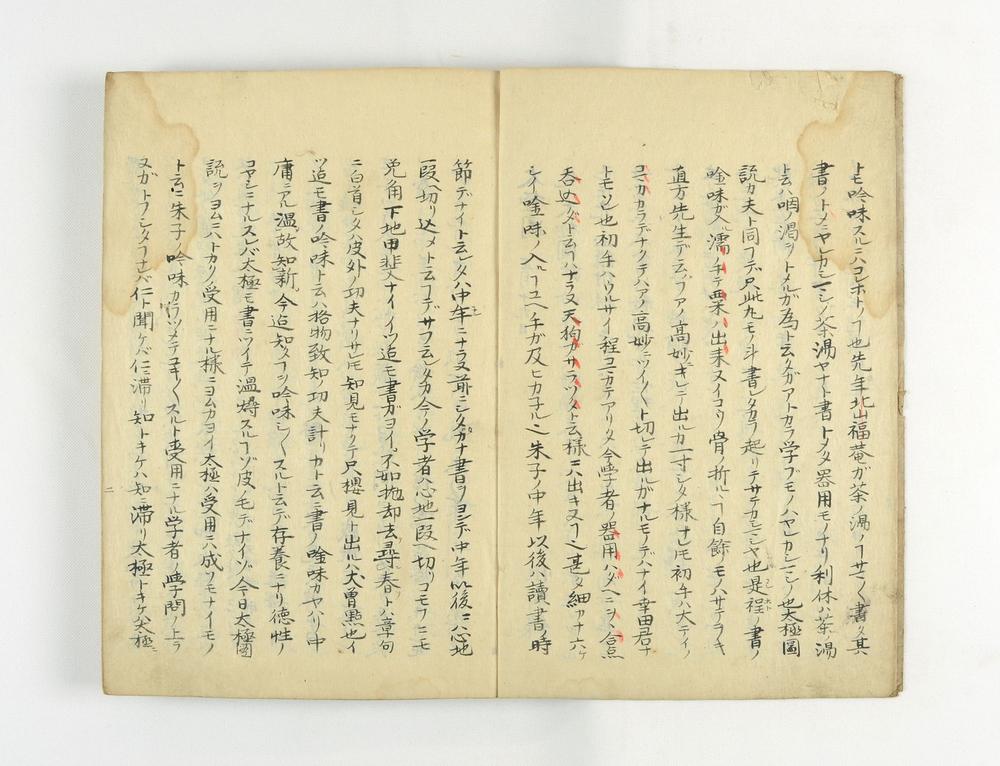 トモ吟味スルニハコレホトノヿ也先年北山福菴ガ茶ノ湯ノヿサマ〱書タ其
書ノトメニヤレカシマシノ茶湯ヤナト書トメタ器用モノナリ利休ハ茶ノ湯
ト云ハ咽ノ渇ヲトメルガ為ト云タガアトカラ学ブモノハヤレカシマシノ也太極圖
説カ夫ト同ヿデ尺此九モノ斗書レタカラ起リテサテカシマシヤ也是程ノ書ノ
唫味ガ入ル濡手デ粟ハ出来ヌイコウ骨ノ折ルヽヿ自餘モノハサテヲキ
直方先生デ云ヘバアノ高妙ギレニ出ルカ一寸シタ様ナレモ初手ハ大テイノ
コマカカラデナクテハアノ高妙ニツイ〱ト切レテ出ルガナルモノデハナイ幸田君ナ
トモソレ也初手ハウルサイ程コマカデアリタ今学者ノ器用ハダヘニヲヽ合点
呑込タト云フハナラヌ天狗カサラツタト云様ニハ出キヌヿ之甚タ細カナ六ケ
シイ唫味ノ入ルヿユヘ手ガ及ヒカ子ル之朱子ノ中年以後ハ讀書ノ時
節デナイト云レタハ中年ニナラヌ前ニシタタカナ書ヲヨンデ中年以後ニハ心地
一段ヘ切リ込メト云フヿデサフ云レタカ今ノ学者ハ心地一段ヘ切ツコモフニモ
兎角下地甲斐ナイイツ迠モ書ガヨイ。不如抛却去尋春トハ章句
ニ白首シタ皮外ノ功夫ナリサレモ知見モナクテ尺櫻見ト出ルハ犬曽點也イ
ツ迠モ書ノ吟味ト云ハ格物致知ノ功夫計リカト云ニ書ノ唫味カヤハリ中
庸ニアル温故知新。今迠知タヿヲ吟味シ〱スルト云デ存養ニナリ徳性ノ
コヤシニナルスレバ太極モ書ニツイテ温燖スルヿゾ皮ノ毛デナイゾ今日太極圖
説ヲヨムニハトカク受用ニナル様ニヨムカヨイ太極ハ受用ニハ成ソモナイモノ
ト云ニ朱子ノ吟味カラツメテユキ〱スルト受用ニナル学者ノ学問ノ上ラ
ヌガトフシタヿナレバ仁ト聞ケバ仁ニ滞リ知トキケハ知ニ滞リ太極トキケ矢極ニ
二